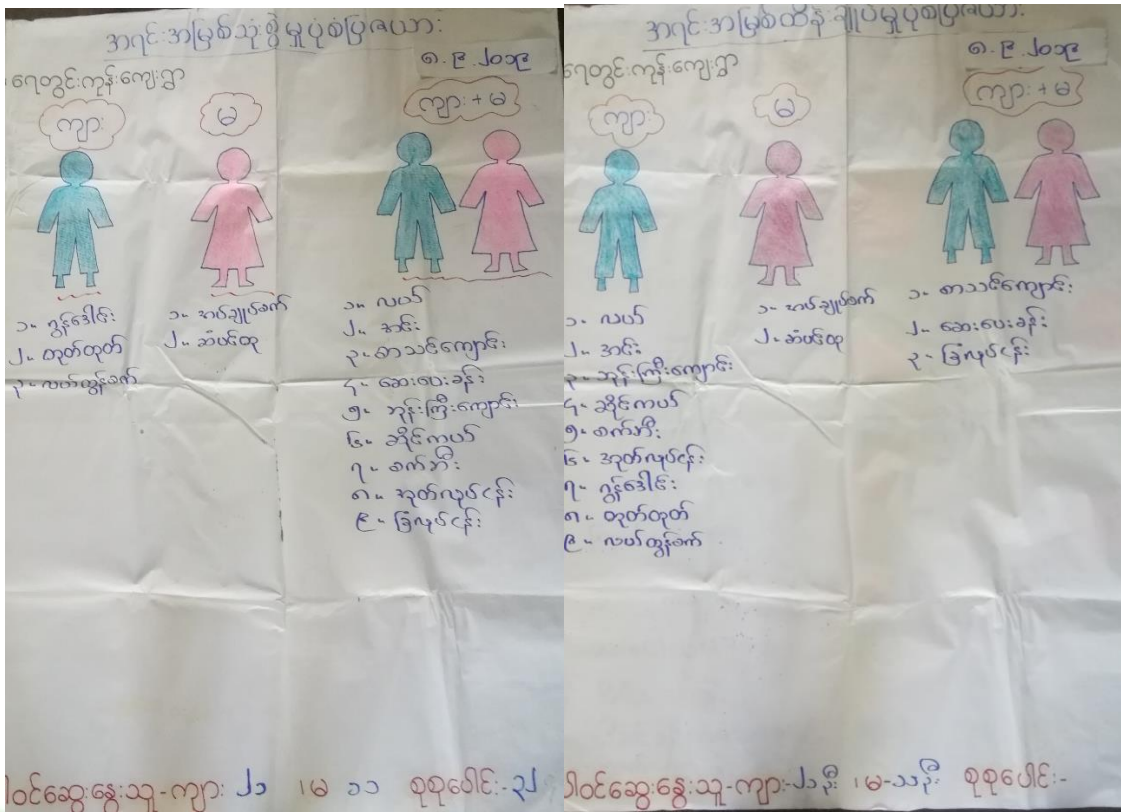 အရင်းအမြစ်သုံးစွဲမှုပုံစံပြဇယား
၈.၉.၂၀၁၉
ရေတွင်းကုန်းကျေးရွာ
ကျား
မ
ကျား + မ
၁။ ဂွန်ဒေါင်း
၂။ ထုတ်ထုတ်
၃။ လယ်ထွန်စက်
၁။ အပ်ချုပ်စက်
၂။ ဆံပင်ထု
၁။ လယ်
၂။ အင်း
၃။ စာသင်ကျောင်း
၄။ ဆေးပေးခန်း
၅။ ဘုန်းကြီးကျောင်း
၆။ ဆိုင်ကယ်
၇။ စက်ဘီး
၈။ အုတ်လုပ်ငန်း
၉။ ခြံလုပ်ငန်း
ပါဝင်ဆွေးနွေးသူ-ကျား ၂၁ ၊မ ၁၁ စုစုပေါင်း-၃၂
အရင်းအမြစ်ထိန်းချုပ်မှုပုံစံပြဇယား
၈.၉.၂၀၁၉
ရေတွင်းကုန်းကျေးရွာ
ကျား
မ
ကျား + မ
၁။ လယ်
၂။ အင်း
၃။ ဘုန်းကြီးကျောင်း
၄။ ဆိုင်ကယ်
၅။ စက်ဘီး
၆။ အုတ်လုပ်ငန်း
၇။ ဂွန်ဒေါင်း
၈။ ထုတ်ထုတ်
၉။ လယ်ထွန်စက်
၁။ အပ်ချုပ်စက်
၂။ ဆံပင်ထု
၁။ စာသင်ကျောင်း
၂။ ဆေးပေးခန်း
၃။ ခြံလုပ်ငန်း
ပါဝင်ဆွေးနွေးသူ-ကျား-၂၁ဦး ၊မ-၁၁ဦး စုစုပေါင်း-